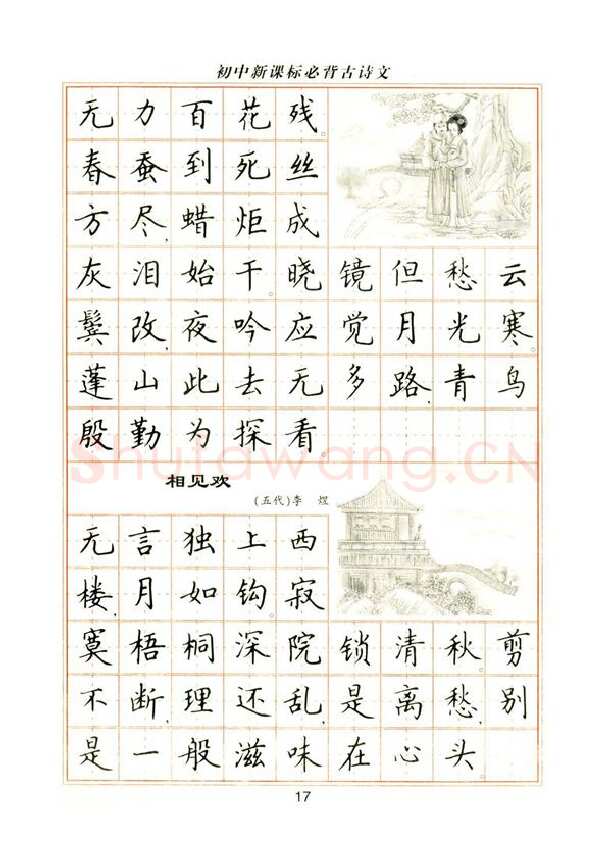 初中新课标必背古诗文
无力百花残。
春蚕到死丝
方尽，蜡炬成
灰泪始干。晓镜但愁云
鬓改，夜吟应觉月光寒。
蓬山此去无多路，青鸟
殷勤为探看。
Shufawang.CN
相见欢
（五代）李煜
无言独上西
楼，月如钩，寂
寞梧桐深院锁清秋。剪
不断，理还乱，是离愁，别
是一般滋味在心头。
17